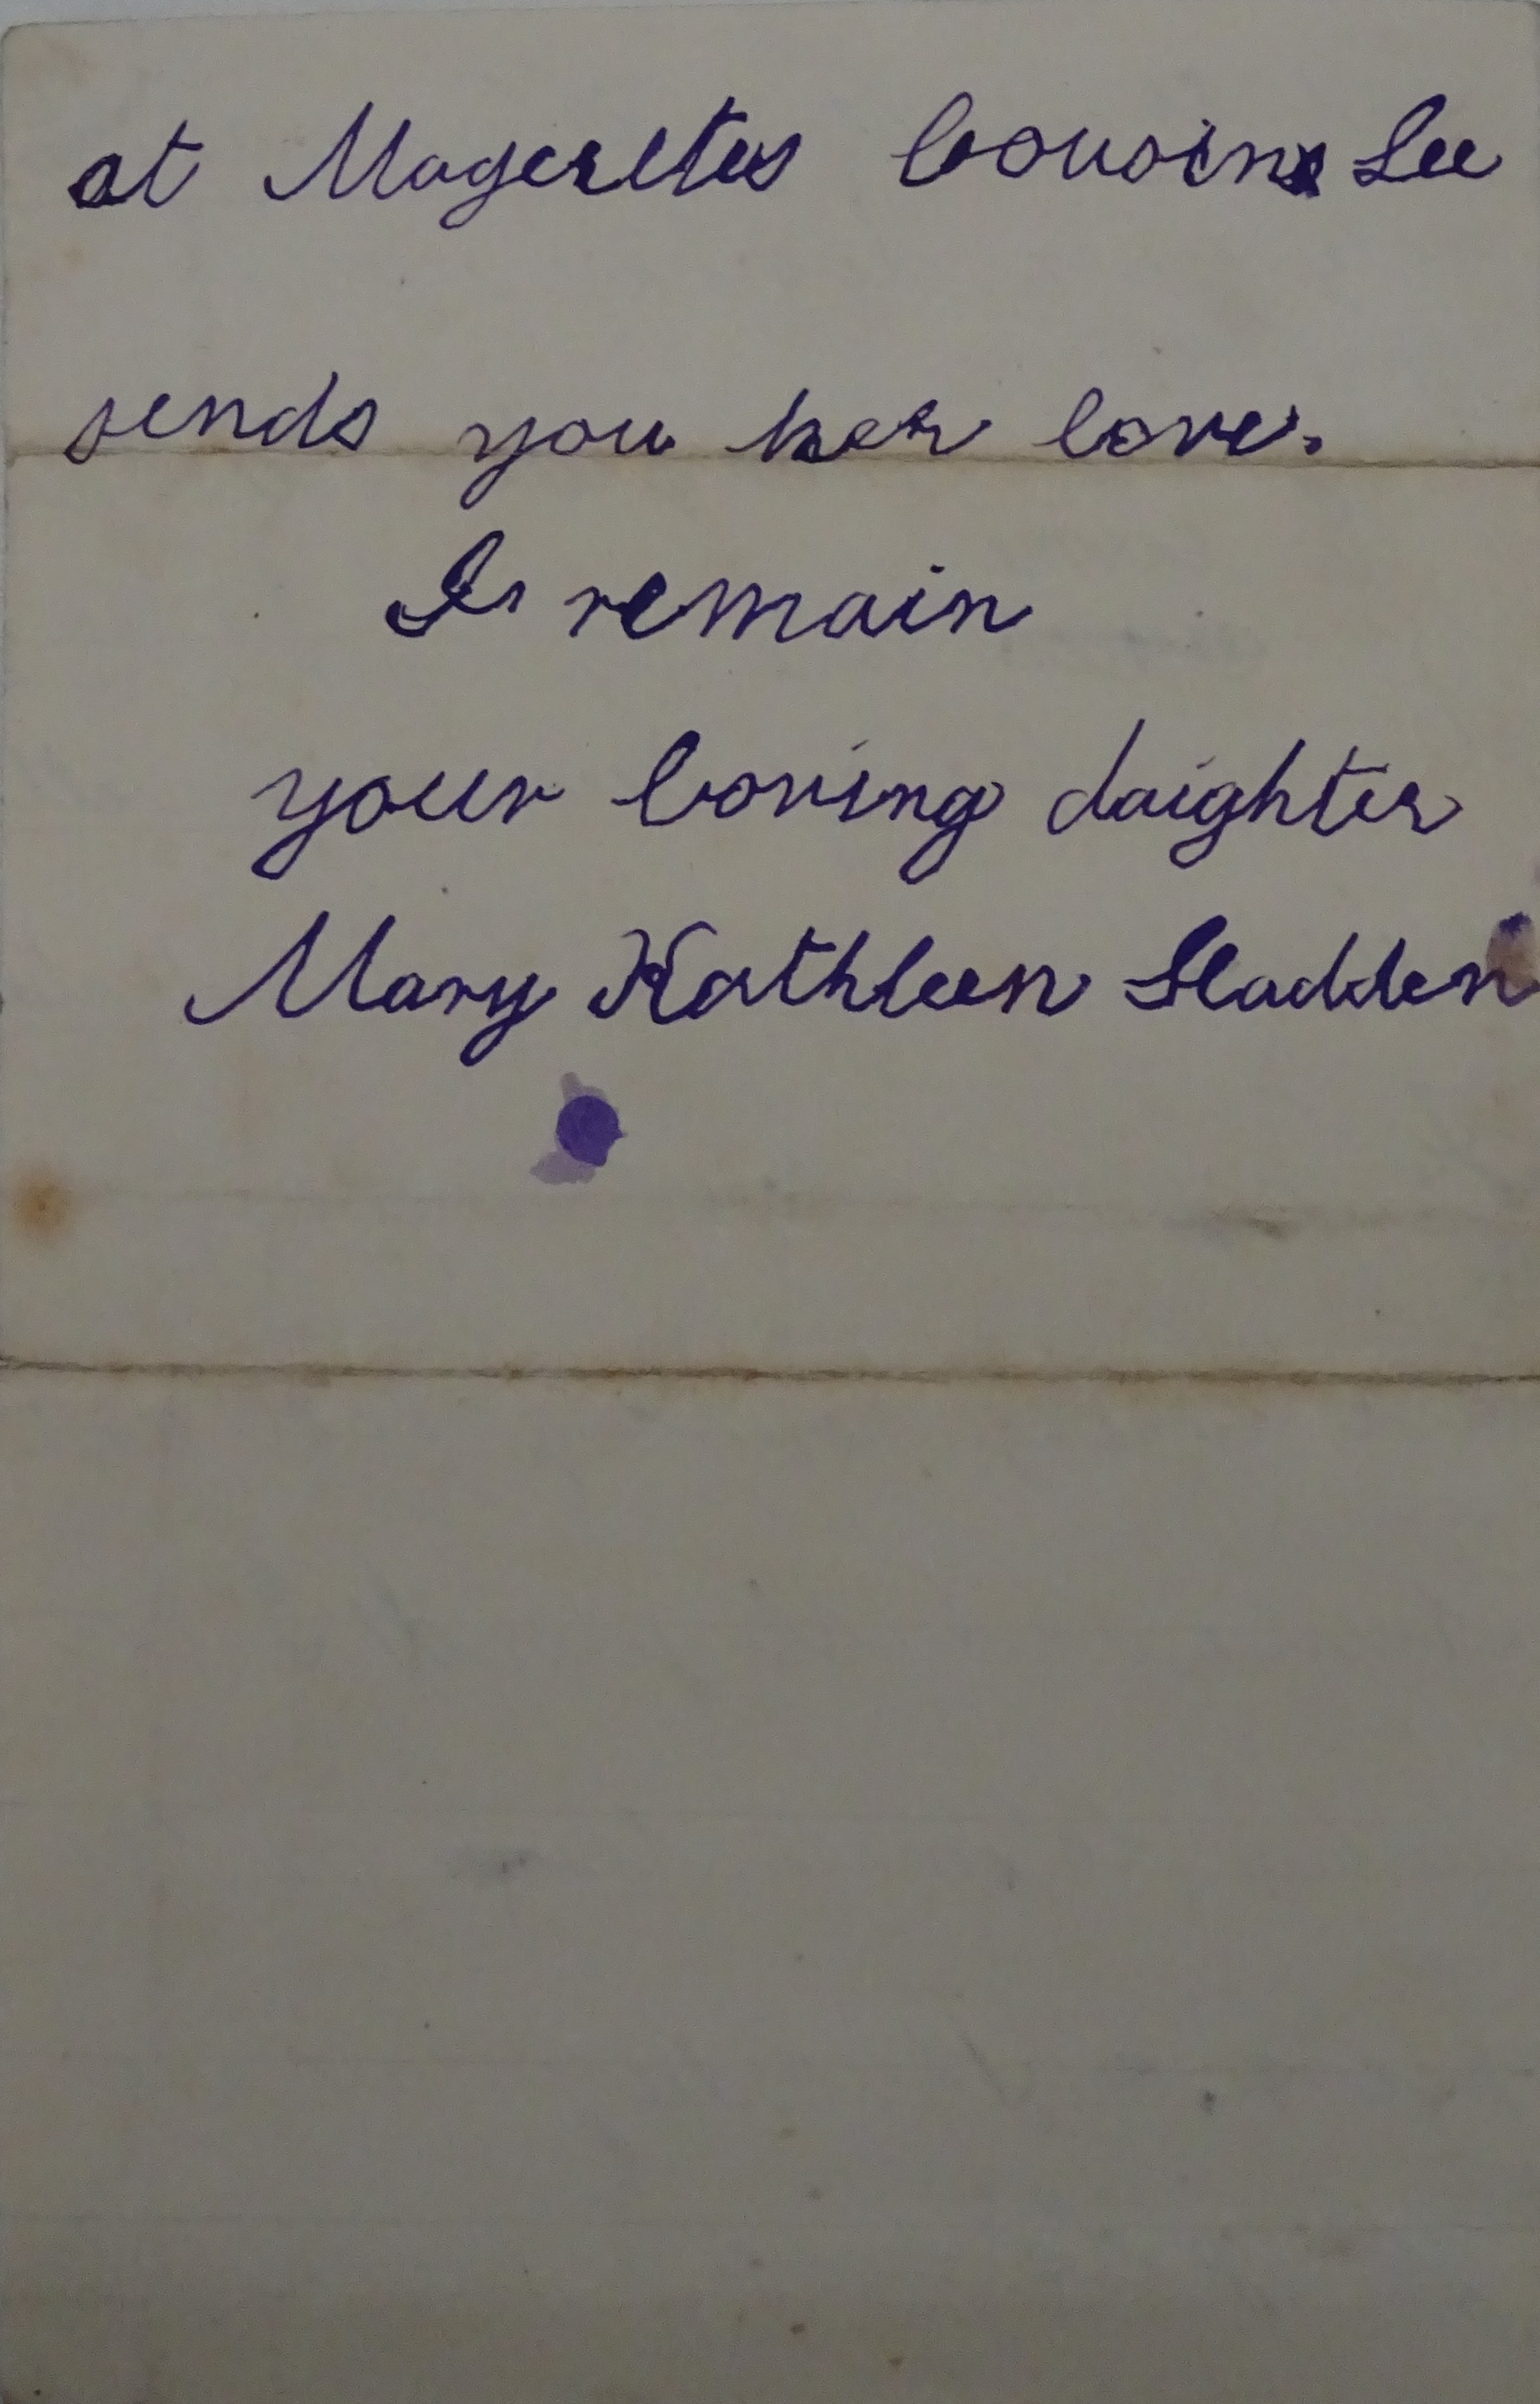 at Mageretes Cousin Lee
sends you her love.
I remain
your loving daighter
Mary Kathleen Sladden